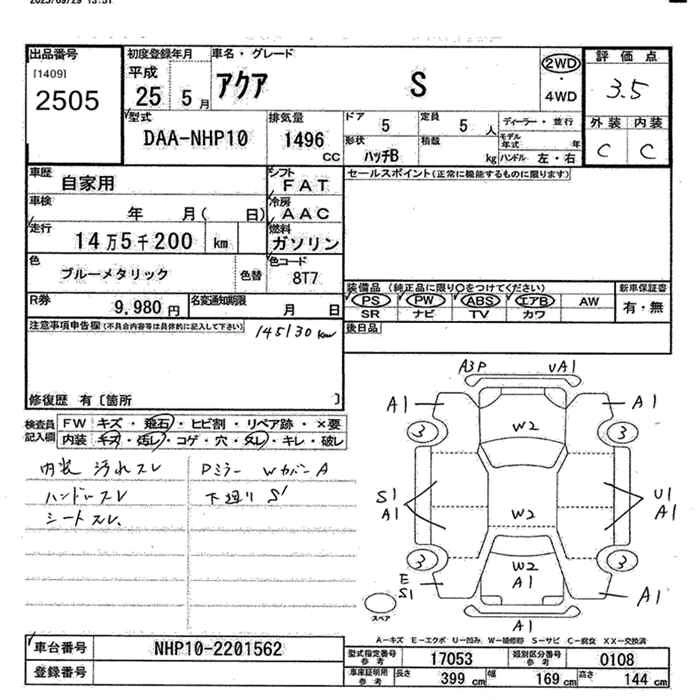 2025/09/29 13:51
出品番号
[1409]
2505
初度登録年月
平成
25 5月
車名・グレード
アクア S
2WD
・
4WD
評価点
3.5
外装 内装
C C
型式
DAA-NHP10
排気量
1496
CC
ドア
5
定員
5人
ディーラー・並行
形状
ハッチB
積載
kg
モデル年式 年
ハンドル 左・右
車歴
自家用
シフト
FAT
セールスポイント(正常に機能するものに限ります)
車検
年 月( 日)
冷房
AAC
走行
14万5千200 km
燃料
ガソリン
色
ブルーメタリック
色替
色コード
8T7
装備品 (純正品に限り○をつけてください)
PS PW ABS エアB AW
SR ナビ TV カワ
新車保証書
有・無
R券
9,980円
名変通知期限
月 日
後日品
注意事項申告欄(不具合内容等は具体的に記入して下さい)
145130km
修復歴 有〔箇所 〕
検査員記入欄
FW キズ・飛石・ヒビ割・リペア跡・×要
内装 キズ・汚レ・コゲ・穴・スレ・キレ・破レ
内装 汚れスレ
ハンドルスレ
シートスレ
Dミラー WカバーA
下廻り S1
A3P UA1
A1 A1
3 3
W2
S1 A1
U1 A1
W2
3 3
E S1
W2 A1
A1
A1
スペア
A-キズ E-エクボ U-凹み W-補修跡 S-サビ C-腐食 XX-交換済
車台番号
NHP10-2201562
登録番号
型式指定番号 参考
17053
類別区分番号 参考
0108
車庫証明用 参考
長さ 399cm
幅 169cm
高さ 144cm